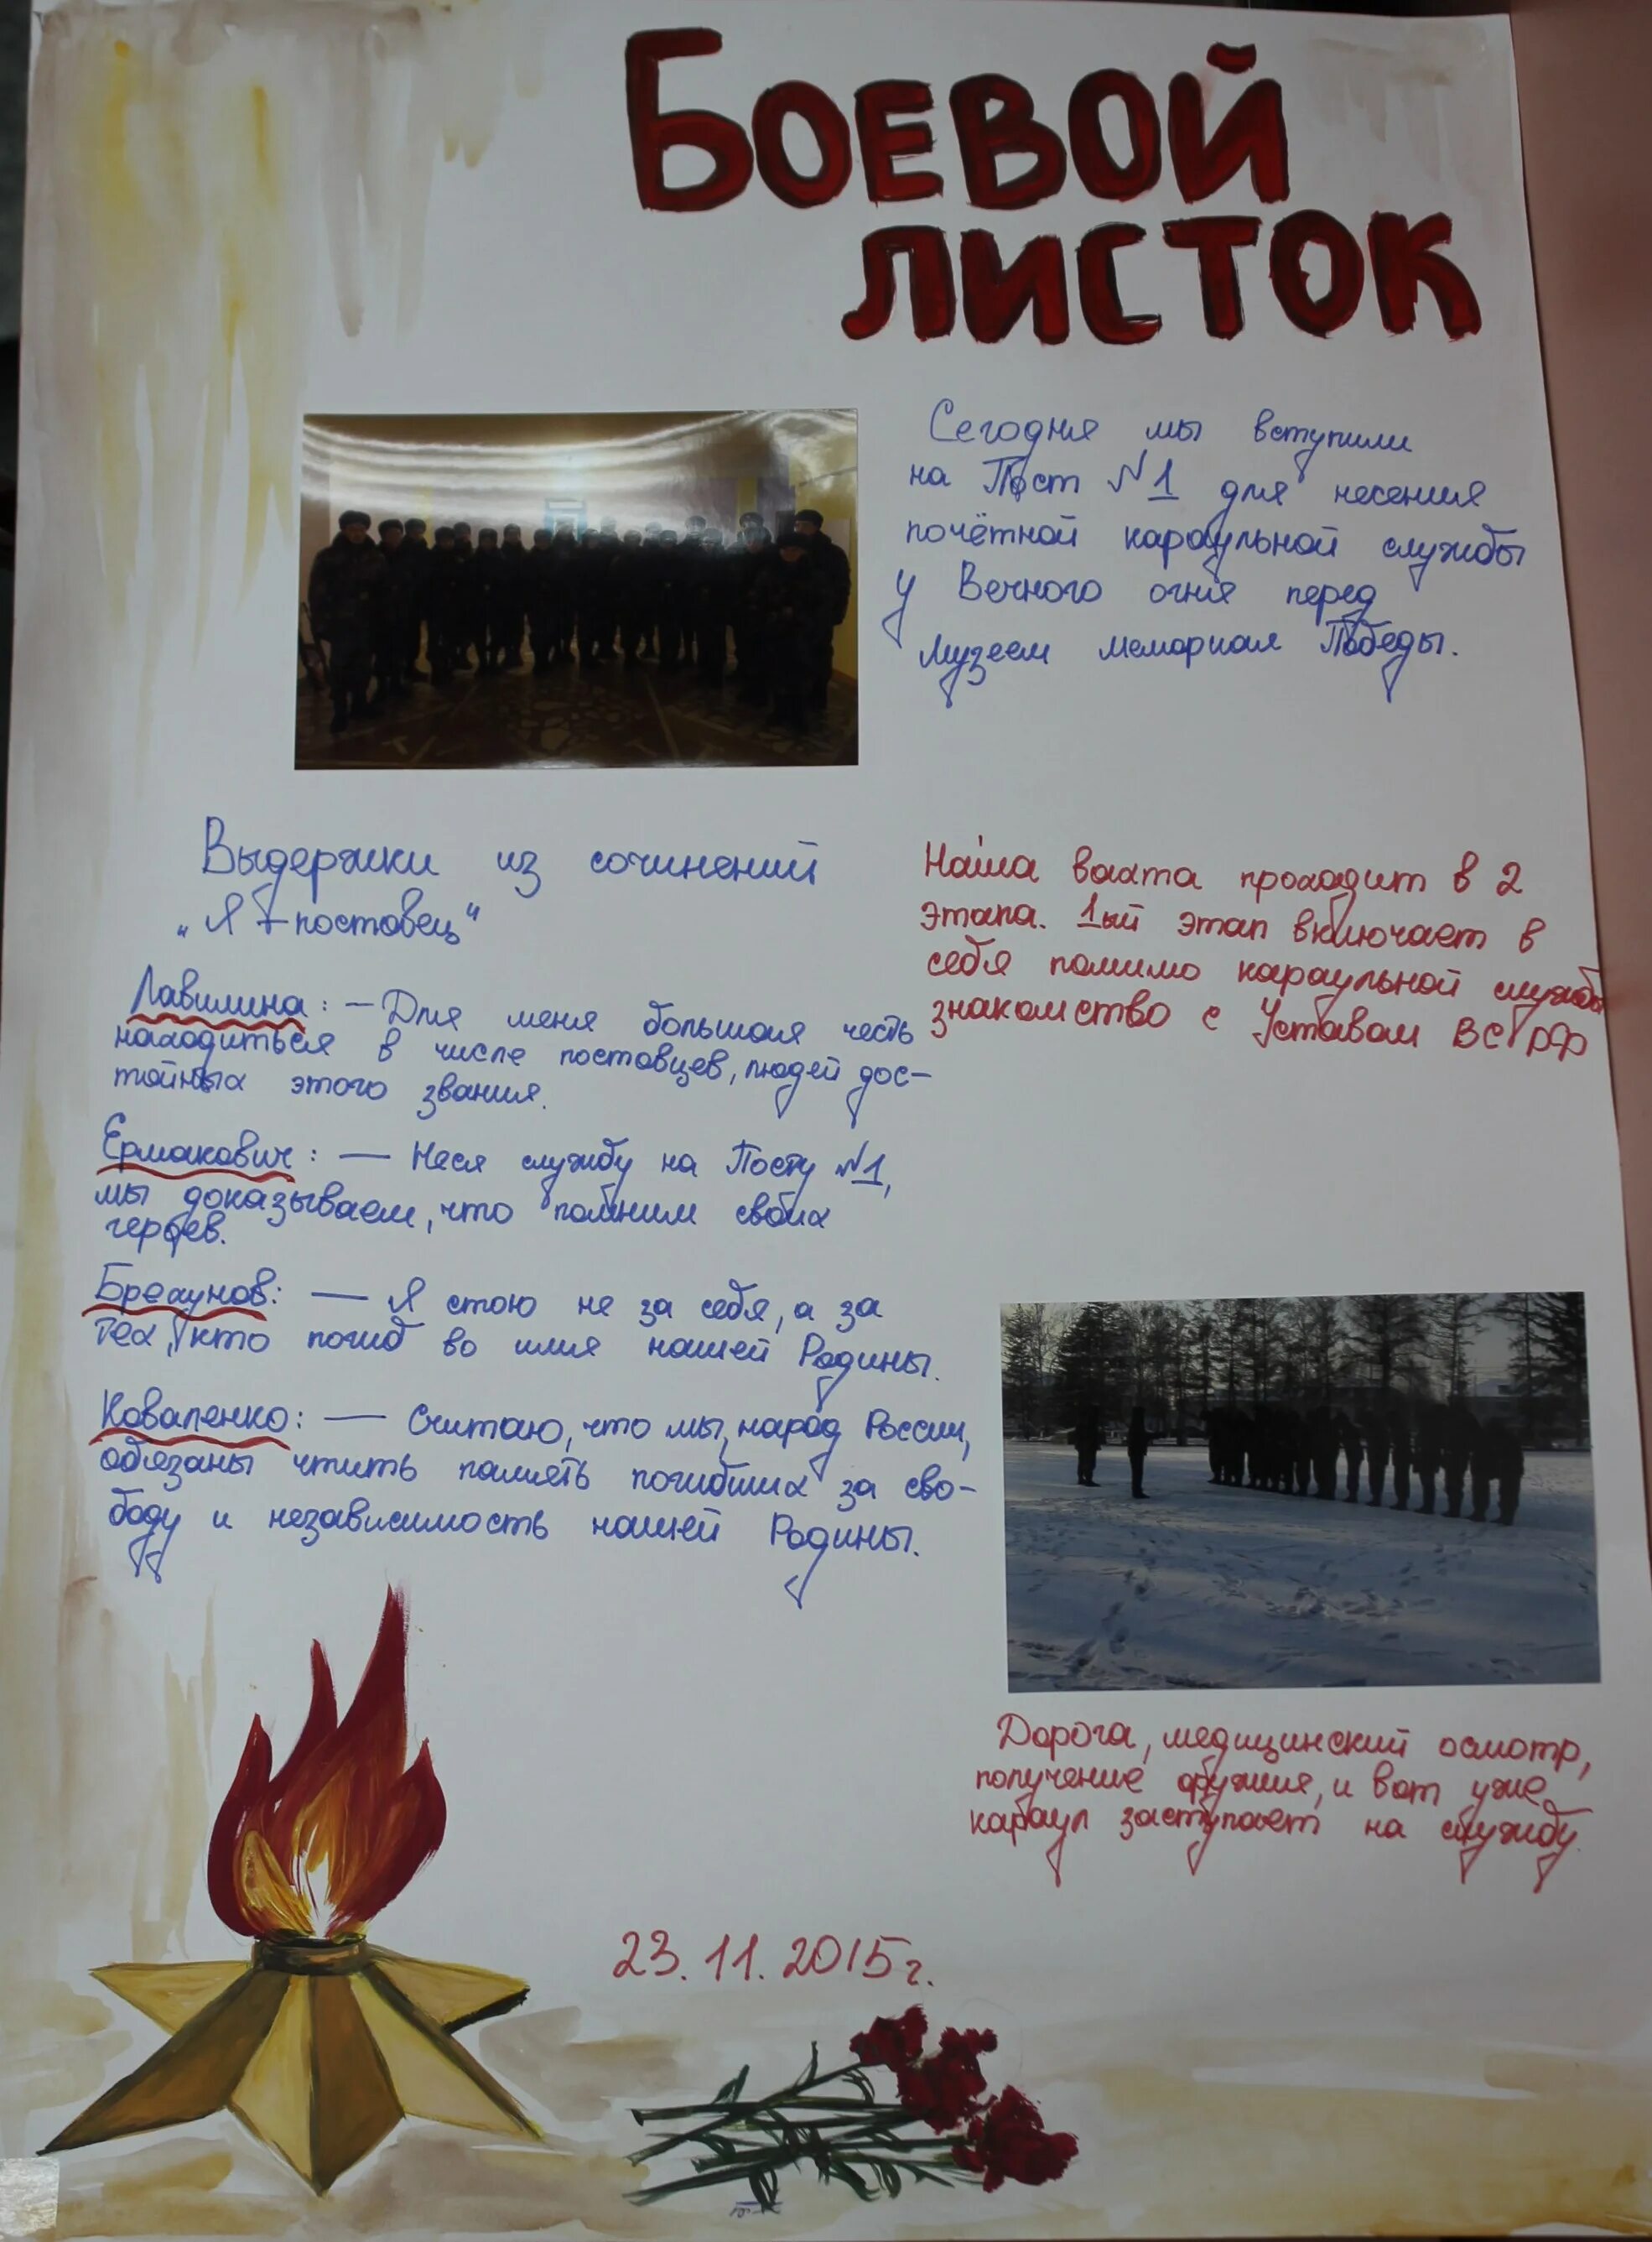 БОЕВОЙ
ЛИСТОК
Сегодня мы вступили
на Пост №1 для несения
почётной караульной службы
у Вечного огня перед
музеем мемориал Победы.
Выдержки из сочинений
„Я - постовец"
Лавилина: — Для меня большая честь
находиться в числе постовцев, людей дос-
тойных этого звания.
Ермакович: — Неся службу на Посту №1,
мы доказываем, что помним своих
героев.
Брехунов: — Я стою не за себя, а за
тех, кто погиб во имя нашей Родины.
Коваленко: — Считаю, что мы, народ России,
обязаны чтить память погибших за сво-
боду и независимость нашей Родины.
Наша вахта проходит в 2
этапа. 1ый этап включает в
себя помимо караульной службы
знакомство с Уставом ВС РФ
Дорога, медицинский осмотр,
получение оружия, и вот уже
караул заступает на службу.
23.11.2015г.